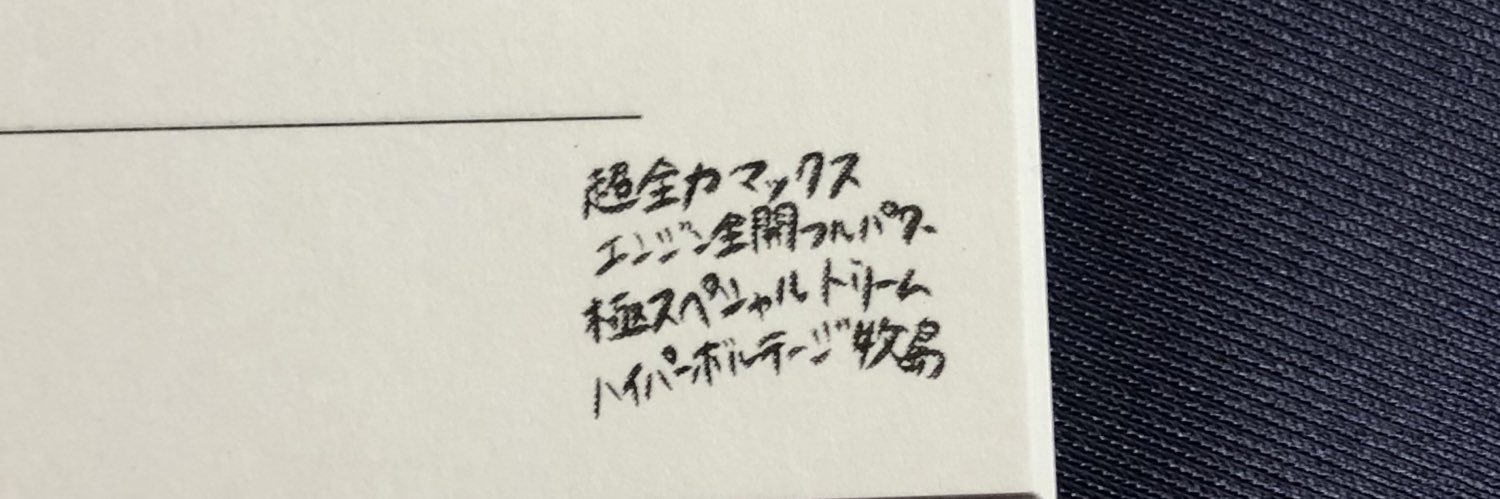 超全力マックス
エンジン全開フルパワー
極スペシャルドリーム
ハイパーボルテージ牧島